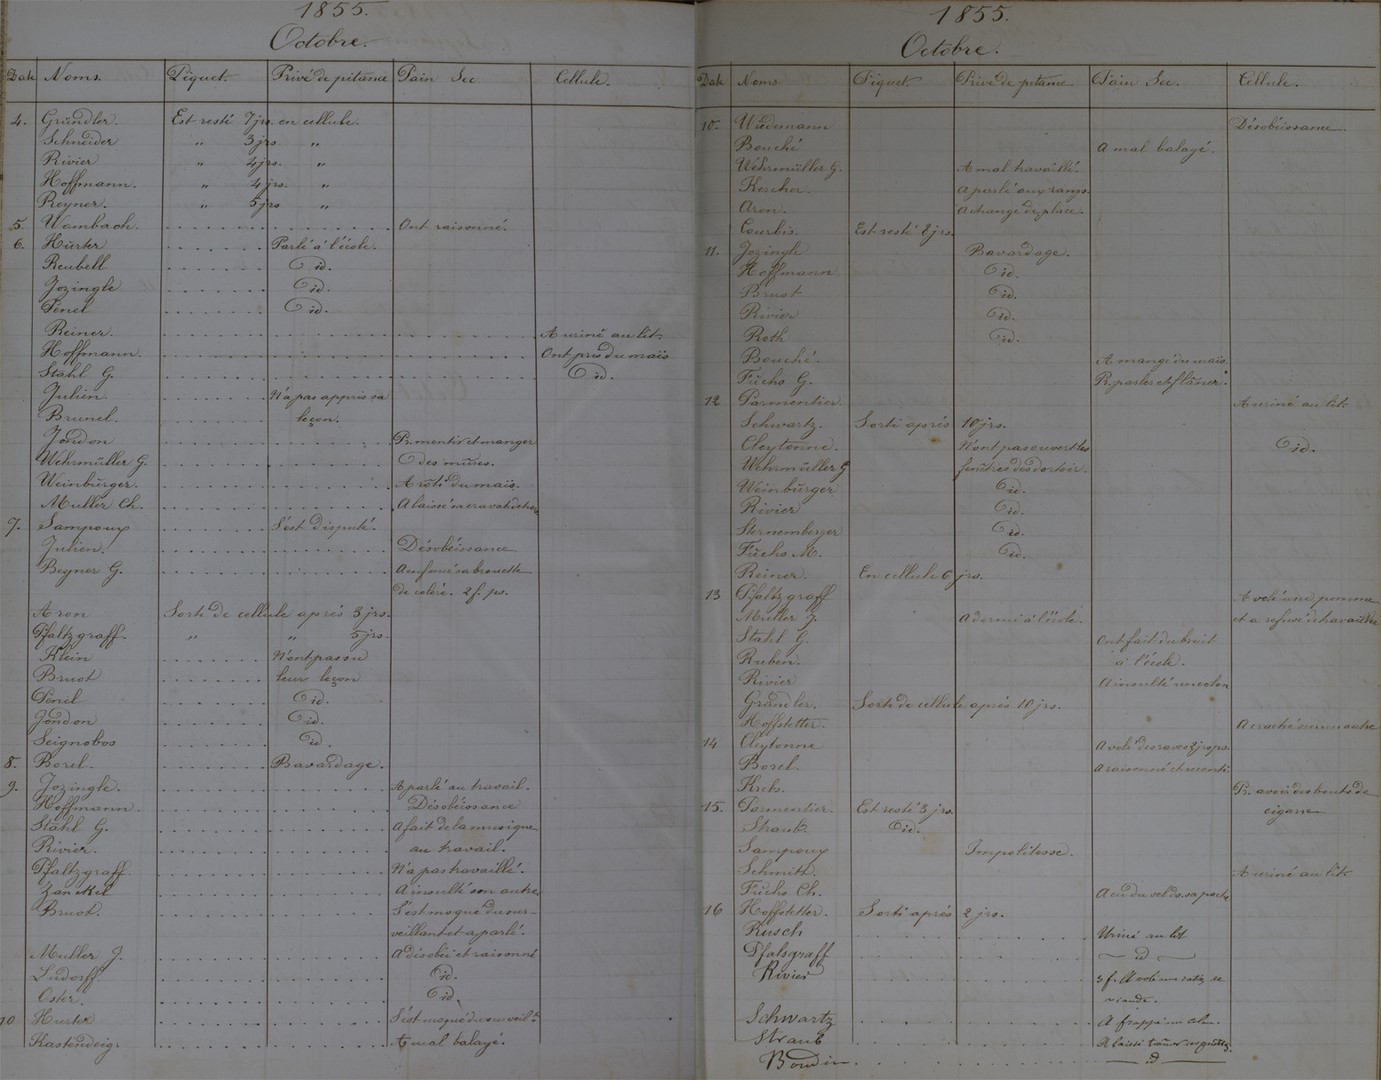 1855.
Octobre.
Date Noms. Piquet. Privé de pitance Pain Sec. Cellule.
4. Gründler. Est resté 7 jrs. en cellule.
Schneider " 3 jrs. "
Rivier " 4 jrs. "
Hoffmann. " 4 jrs. "
Reyner. " 5 jrs "
5. Wambach. Ont raisonné.
6. Hürter Parlé à l'école.
Reubell id.
Jozingle id.
Penel id.
Reiner. A uriné au lit.
Hoffmann. Ont pris du maïs
Stahl G. id.
Julien. N'a pas appris sa
Brunel. leçon.
Jondon Pr. mentir et manger
Wehrmüller G. des mûres.
Weinbürger. A rôti du maïs.
Muller Ch. A laissé sa cravate
7. Sampoux S'est disputé.
Julien. Désobéissance
Beyner G. A enfoncé sa brouette
de colère. 2 f. ps.
Aron Sorti de cellule après 3 jrs.
Pfaltzgraff. " " 5 jrs.
Klein N'ont pas su
Bruot leur leçon
Penel id.
Jondon id.
Seignobos id.
8. Borel. Bavardage.
9. Jozingle. A parlé au travail.
Hoffmann. Désobéissance
Stahl G. A fait de la musique
Rivier. au travail.
Pfaltzgraff N'a pas travaillé.
Zanckel A insulté son autre
Bruot. S'est moqué du sur-
veillant et a parlé.
Muller J. A désobéi et raisonné
Ludorff. id.
Oster. id.
10 Hurter S'est moqué du surveilt.
Kastendeig. A mal balayé.
1855.
Octobre.
Date Noms Piquet. Privé de pitance Pain Sec. Cellule.
10. Wiedmann Désobéissance.
Bouché A mal balayé.
Wehrmüller G. A mal travaillé.
Kercher. A parlé aux rangs.
Aron. A changé de place.
Courbis. Est resté 2 jrs.
11. Jozingle Bavardage.
Hoffmann id.
Bruot id.
Rivier id.
Roth id.
Bouché. A mangé du maïs.
Füchs G. P. parler et flâner.
12 Parmentier. A uriné au lit.
Schwartz. Sorti après 10 jrs.
Cleytonne. N'ont pas ouvert les id.
Wehrmüller G fenêtres des dortoir.
Weinbürger id.
Rivier id.
Sternemberger id.
Füchs M. id.
Reiner. En cellule 6 jrs.
13 Pfaltzgraff A volé une pomme
Müller J. A dormi à l'école. et a refusé de travailler
Stahl G. Ont fait du bruit
Ruben. à l'école.
Rivier A insulté un colon
Gründler. Sorti de cellule après 10 jrs.
Hoffstetter. A craché sur un autre
14 Cleytonne A volé des raves 2 jrs ps.
Borel. A raisonné et menti.
Kreb. Pr. avoir des bouts de
15. Parmentier. Est resté 3 jrs. cigarre
Straub. id.
Sampoux Impolitesse.
Schmitt. A uriné au lit.
Füchs Ch. A eu du sel ds. sa poche
16 Hoffstetter. Sorti après 2 jrs.
Rusch Uriné au lit
Pfalsgraff id
Rivier 3 f. A volé une ration de
viande.
Schwartz A frappé un
Straub A laissé traîner ses
Boudin id